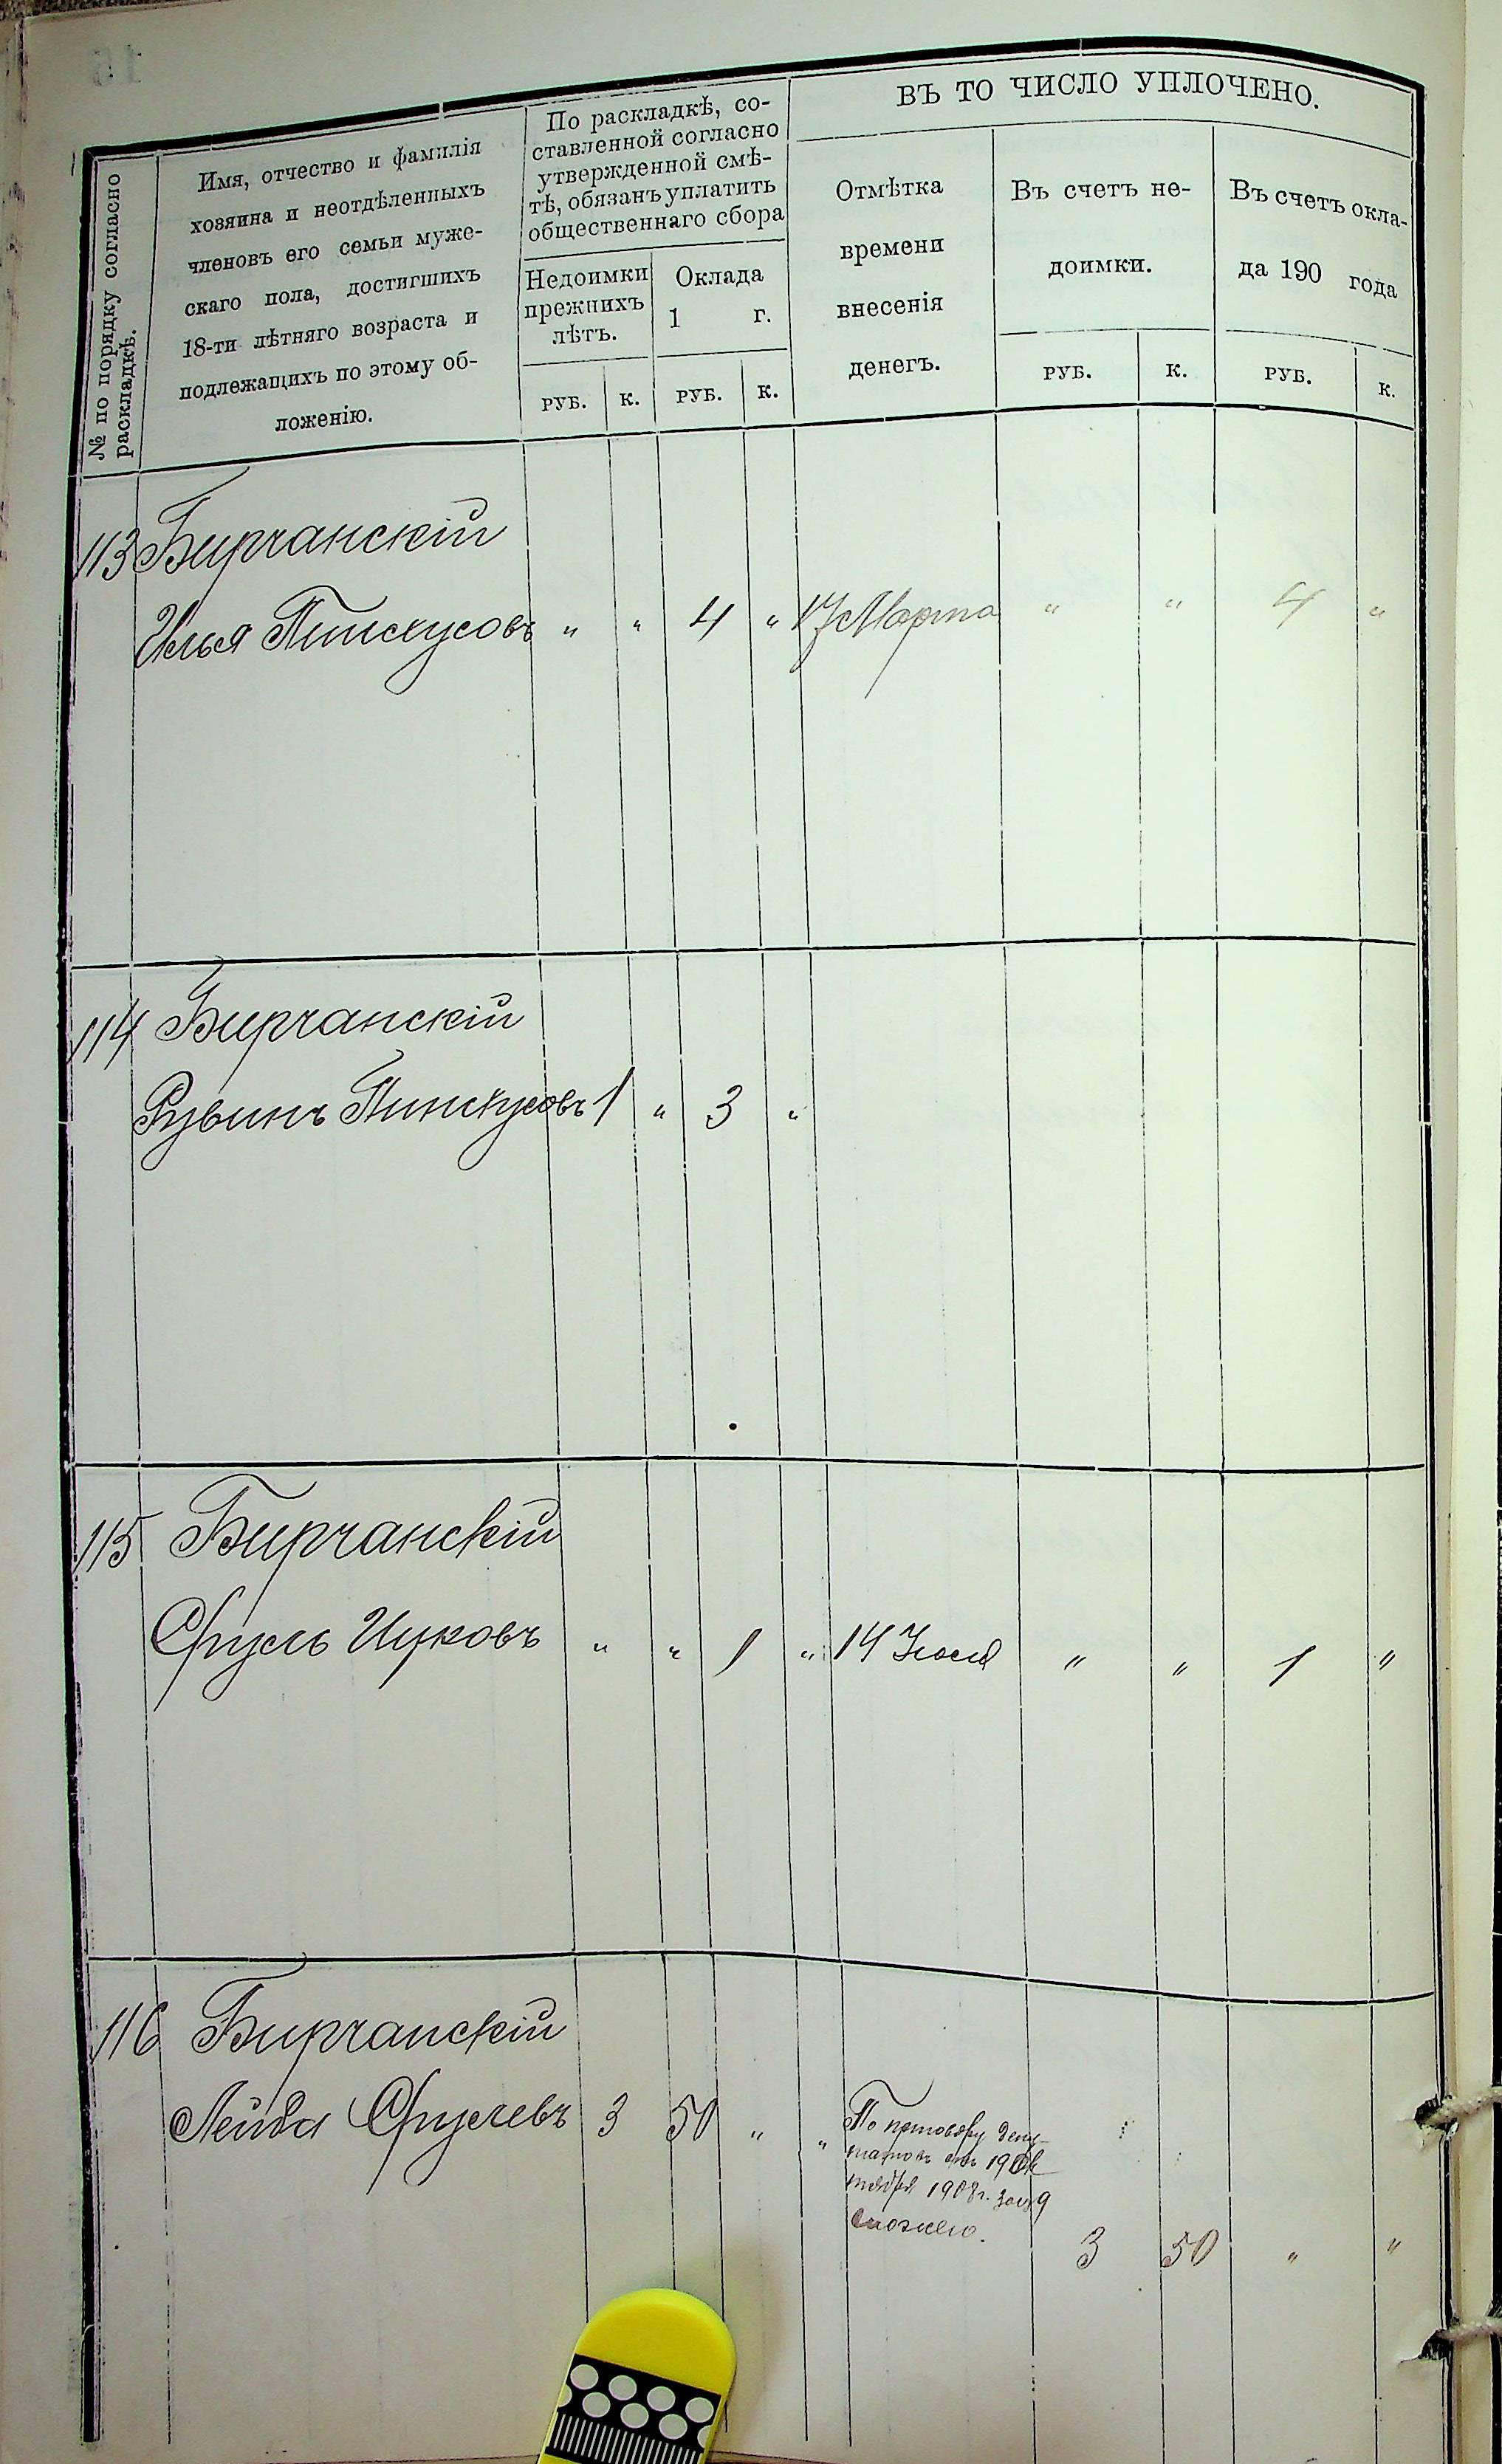 ВЪ ТО ЧИСЛО УПЛОЧЕНО.
№ по порядку согласно
раскладкѣ.
Имя, отчество и фамилія
хозяина и неотдѣленныхъ
членовъ его семьи муже-
скаго пола, достигшихъ
18-ти лѣтняго возраста и
подлежащихъ по этому об-
ложенію.
По раскладкѣ, со-
ставленной согласно
утвержденной смѣ-
тѣ, обязанъ уплатить
общественнаго сбора
Недоимки
прежнихъ
лѣтъ.
Оклада
1 г.
Отмѣтка
времени
внесенія
денегъ.
Въ счетъ не-
доимки.
Въ счетъ окла-
да 190 года
РУБ. К. РУБ. К. РУБ. К. РУБ. К.
113 Бирчанскій
Илья Пинкусовъ " " 4 " 17 Марта " " 4 "
114 Бирчанскій
Рувинъ Пинкусовъ 1 " 3 "
115 Бирчанскій
Сруль Ицковъ " " 1 " 14 Іюля " " 1 "
116 Бирчанскій
Лейба Срулевъ 3 50 " "
По приговору депу-
татовъ отъ 19 Ок
тября 1908 г. за № 9
сложено. 3 50 " "